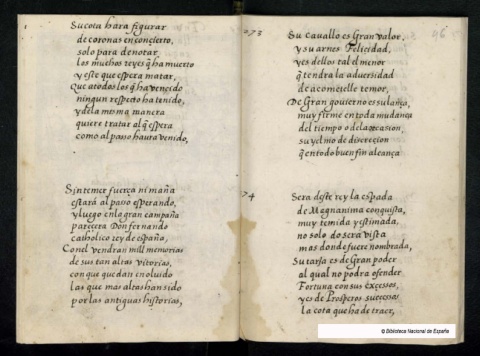 Su cota hara figurar
de coronas en conçierto,
solo para denotar
los muchos reyes q̃ ha muerto
y este que espera matar,
Que a todos los q̃ ha vençido
ningun respecto ha tenido,
y dela mesma manera
quiere tratar al q̃ espera
como al passo haura venido,
Sin temer fuerça ni maña
estará al passo esperando,
y luego en la gran campaña
pareçera Don fernando
catholico rey de españa,
Conel vendran mill memorias
de sus tan altas vitorias,
con que quedan en oluido
las que mas altas han sido
por las antiguas historias,
073
96
Su cauallo es Gran valor,
y su arnes Felicidad,
y es dellos tal el menor
q̃ tendra la aduersidad
de acometelle temor,
De Gran gouierno es su lança,
muy firme en toda mudança
del tiempo o dela occasion,
su yelmo de discreçion
q̃ en todo buen fin alcança
74
Sera deste rey la espada
de Magnanima conquista,
muy temida y estimada,
no solo do sera vista
mas donde fuere nombrada,
Su tarja es de Gran poder
al qual no podra ofender
Fortuna con sus excessos,
y es de Prosperos sucessos
la cota que ha de traer,
© Biblioteca Nacional de España